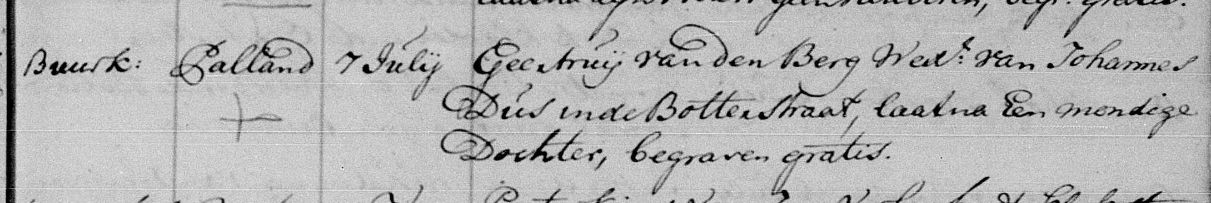 begr. gratis.
Buurk: Palland 7 Julij Geertruij van den Berg Wed:e van Johannes
Dús in de Botterstraat, laatna Een mondige
Dochter, begraven gratis.